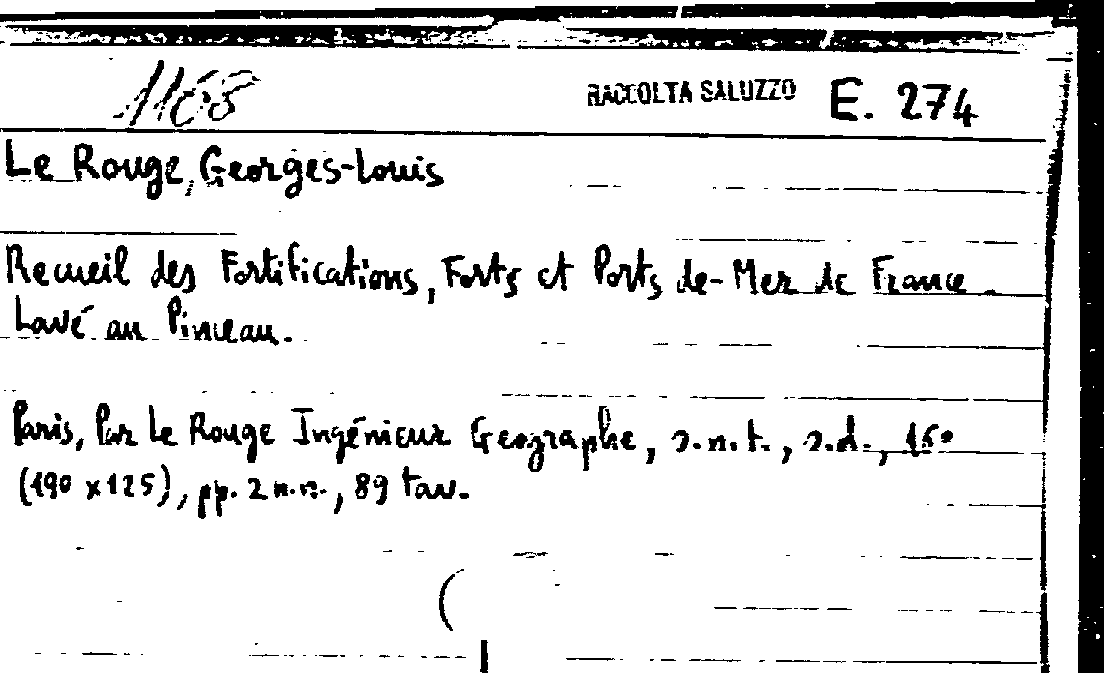 1168 RACCOLTA SALUZZO E. 274
Le Rouge, Georges-Louis
Recueil des Fortifications, Forts et Ports de-Mer de France.
Lavé au Pinceau.
Paris, Par Le Rouge Ingénieur Geographe, s.n.t., s.d., 16°
(190 x 125), pp. 2 n.n., 89 tav.